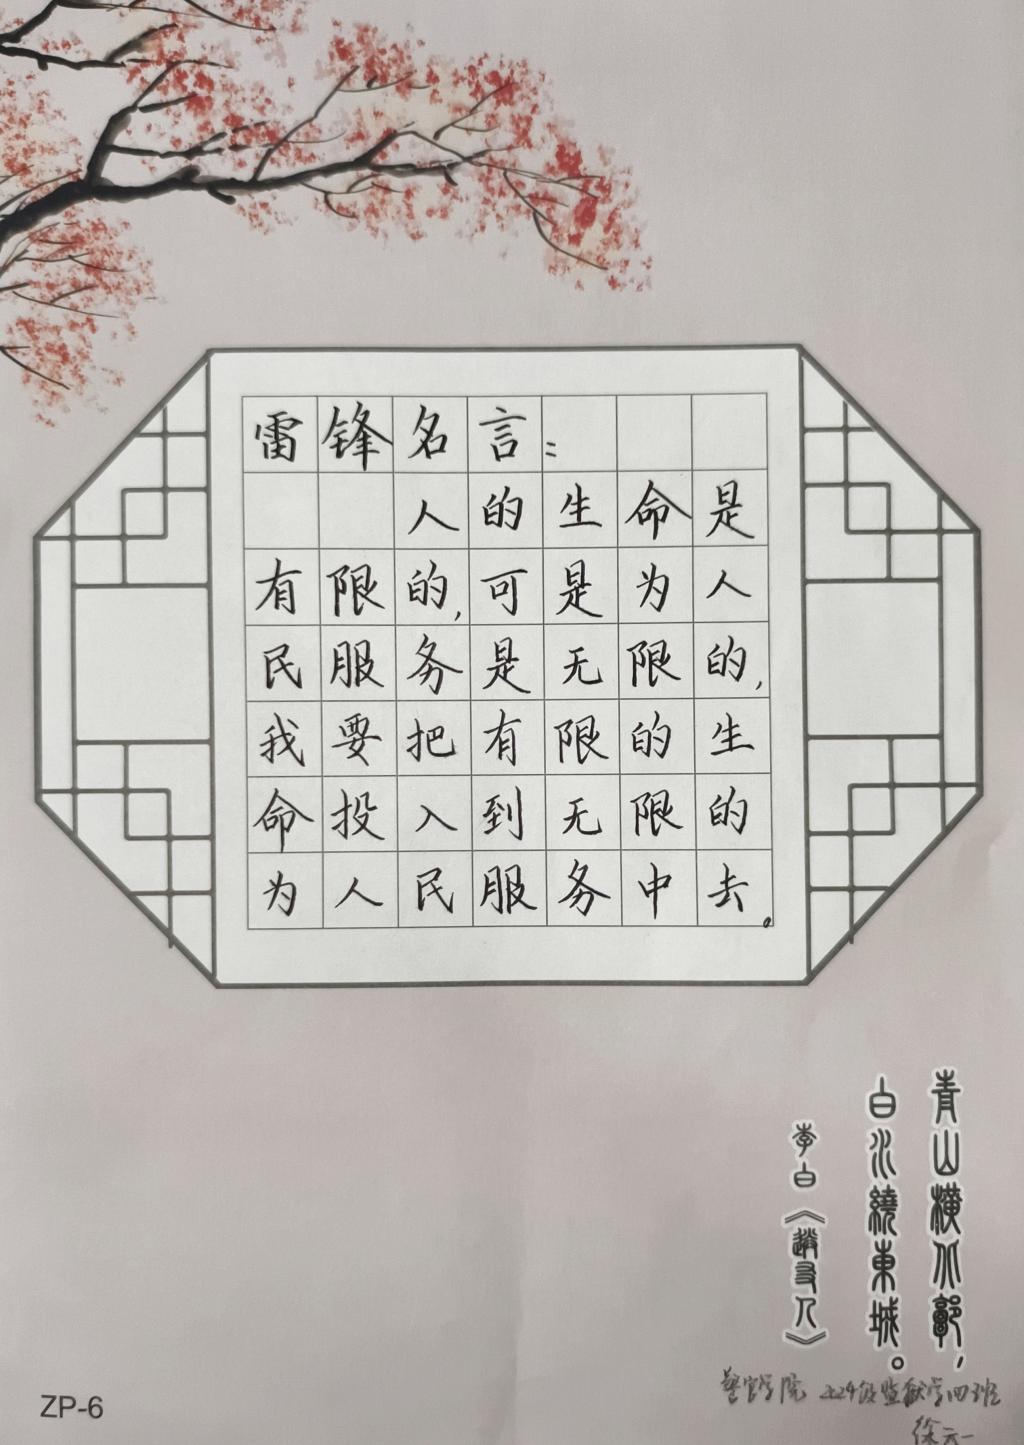 雷锋名言：
人的生命是
有限的,可是为人
民服务是无限的,
我要把有限的生
命投入到无限的
为人民服务中去。
青山橫北郭,
白水繞東城。
李白《送友人》
警官学院 2024级监狱学四班
徐云一
ZP-6